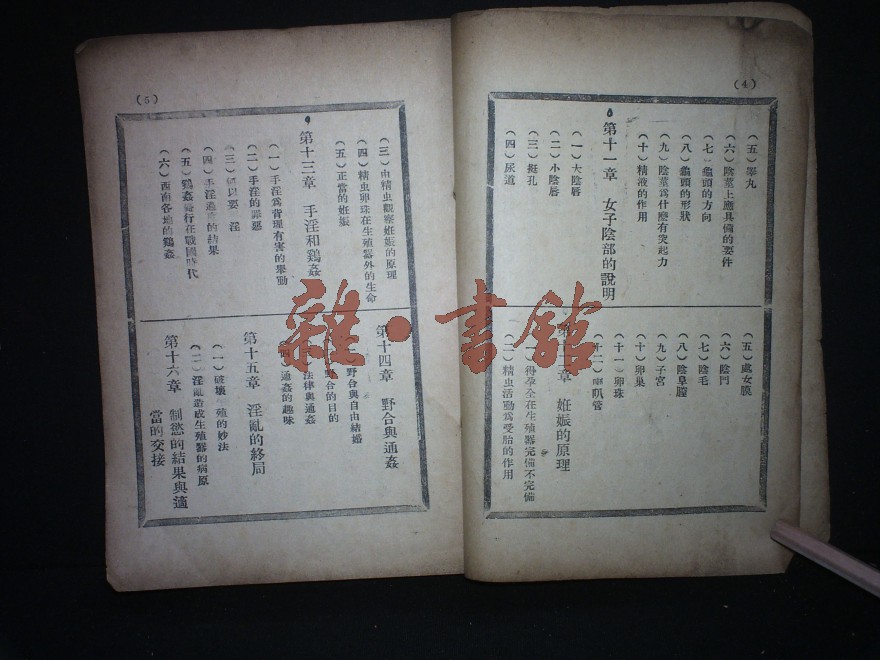 (4)
(五)睪丸
(六)陰莖上應具備的要件
(七)龜頭的方向
(八)龜頭的形狀
(九)陰莖爲什麽有突起力
(十)精液的作用
第十一章 女子陰部的說明
(一)大陰唇
(二)小陰唇
(三)挺孔
(四)尿道
(五)處女膜
(六)陰門
(七)陰毛
(八)陰阜
(九)子宮
(十)卵巢
(十一)卵珠
喇叭管
章 妊娠的原理
得孕全在生殖器完備不完備
(二)精虫活動爲受胎的作用
(5)
(三)由精虫觀察妊娠的原理
(四)精虫卵珠在生殖器外的生命
(五)正當的妊娠
第十三章 手淫和鷄姦
(一)手淫爲背理有害的舉動
(二)手淫的罪惡
(三) 要 淫
(四)手淫過度的結果
(五)鷄姦 行在戰國時代
(六)西南各地的鷄姦
第十四章 野合與通姦
野合與自由結婚
野合的目的
法律與通姦
通姦的趣味
第十五章 淫亂的終局
(一)破壞 殖的妙法
(二)淫亂造成生殖器的病原
第十六章 制慾的結果與適
當的交接
雜·書館